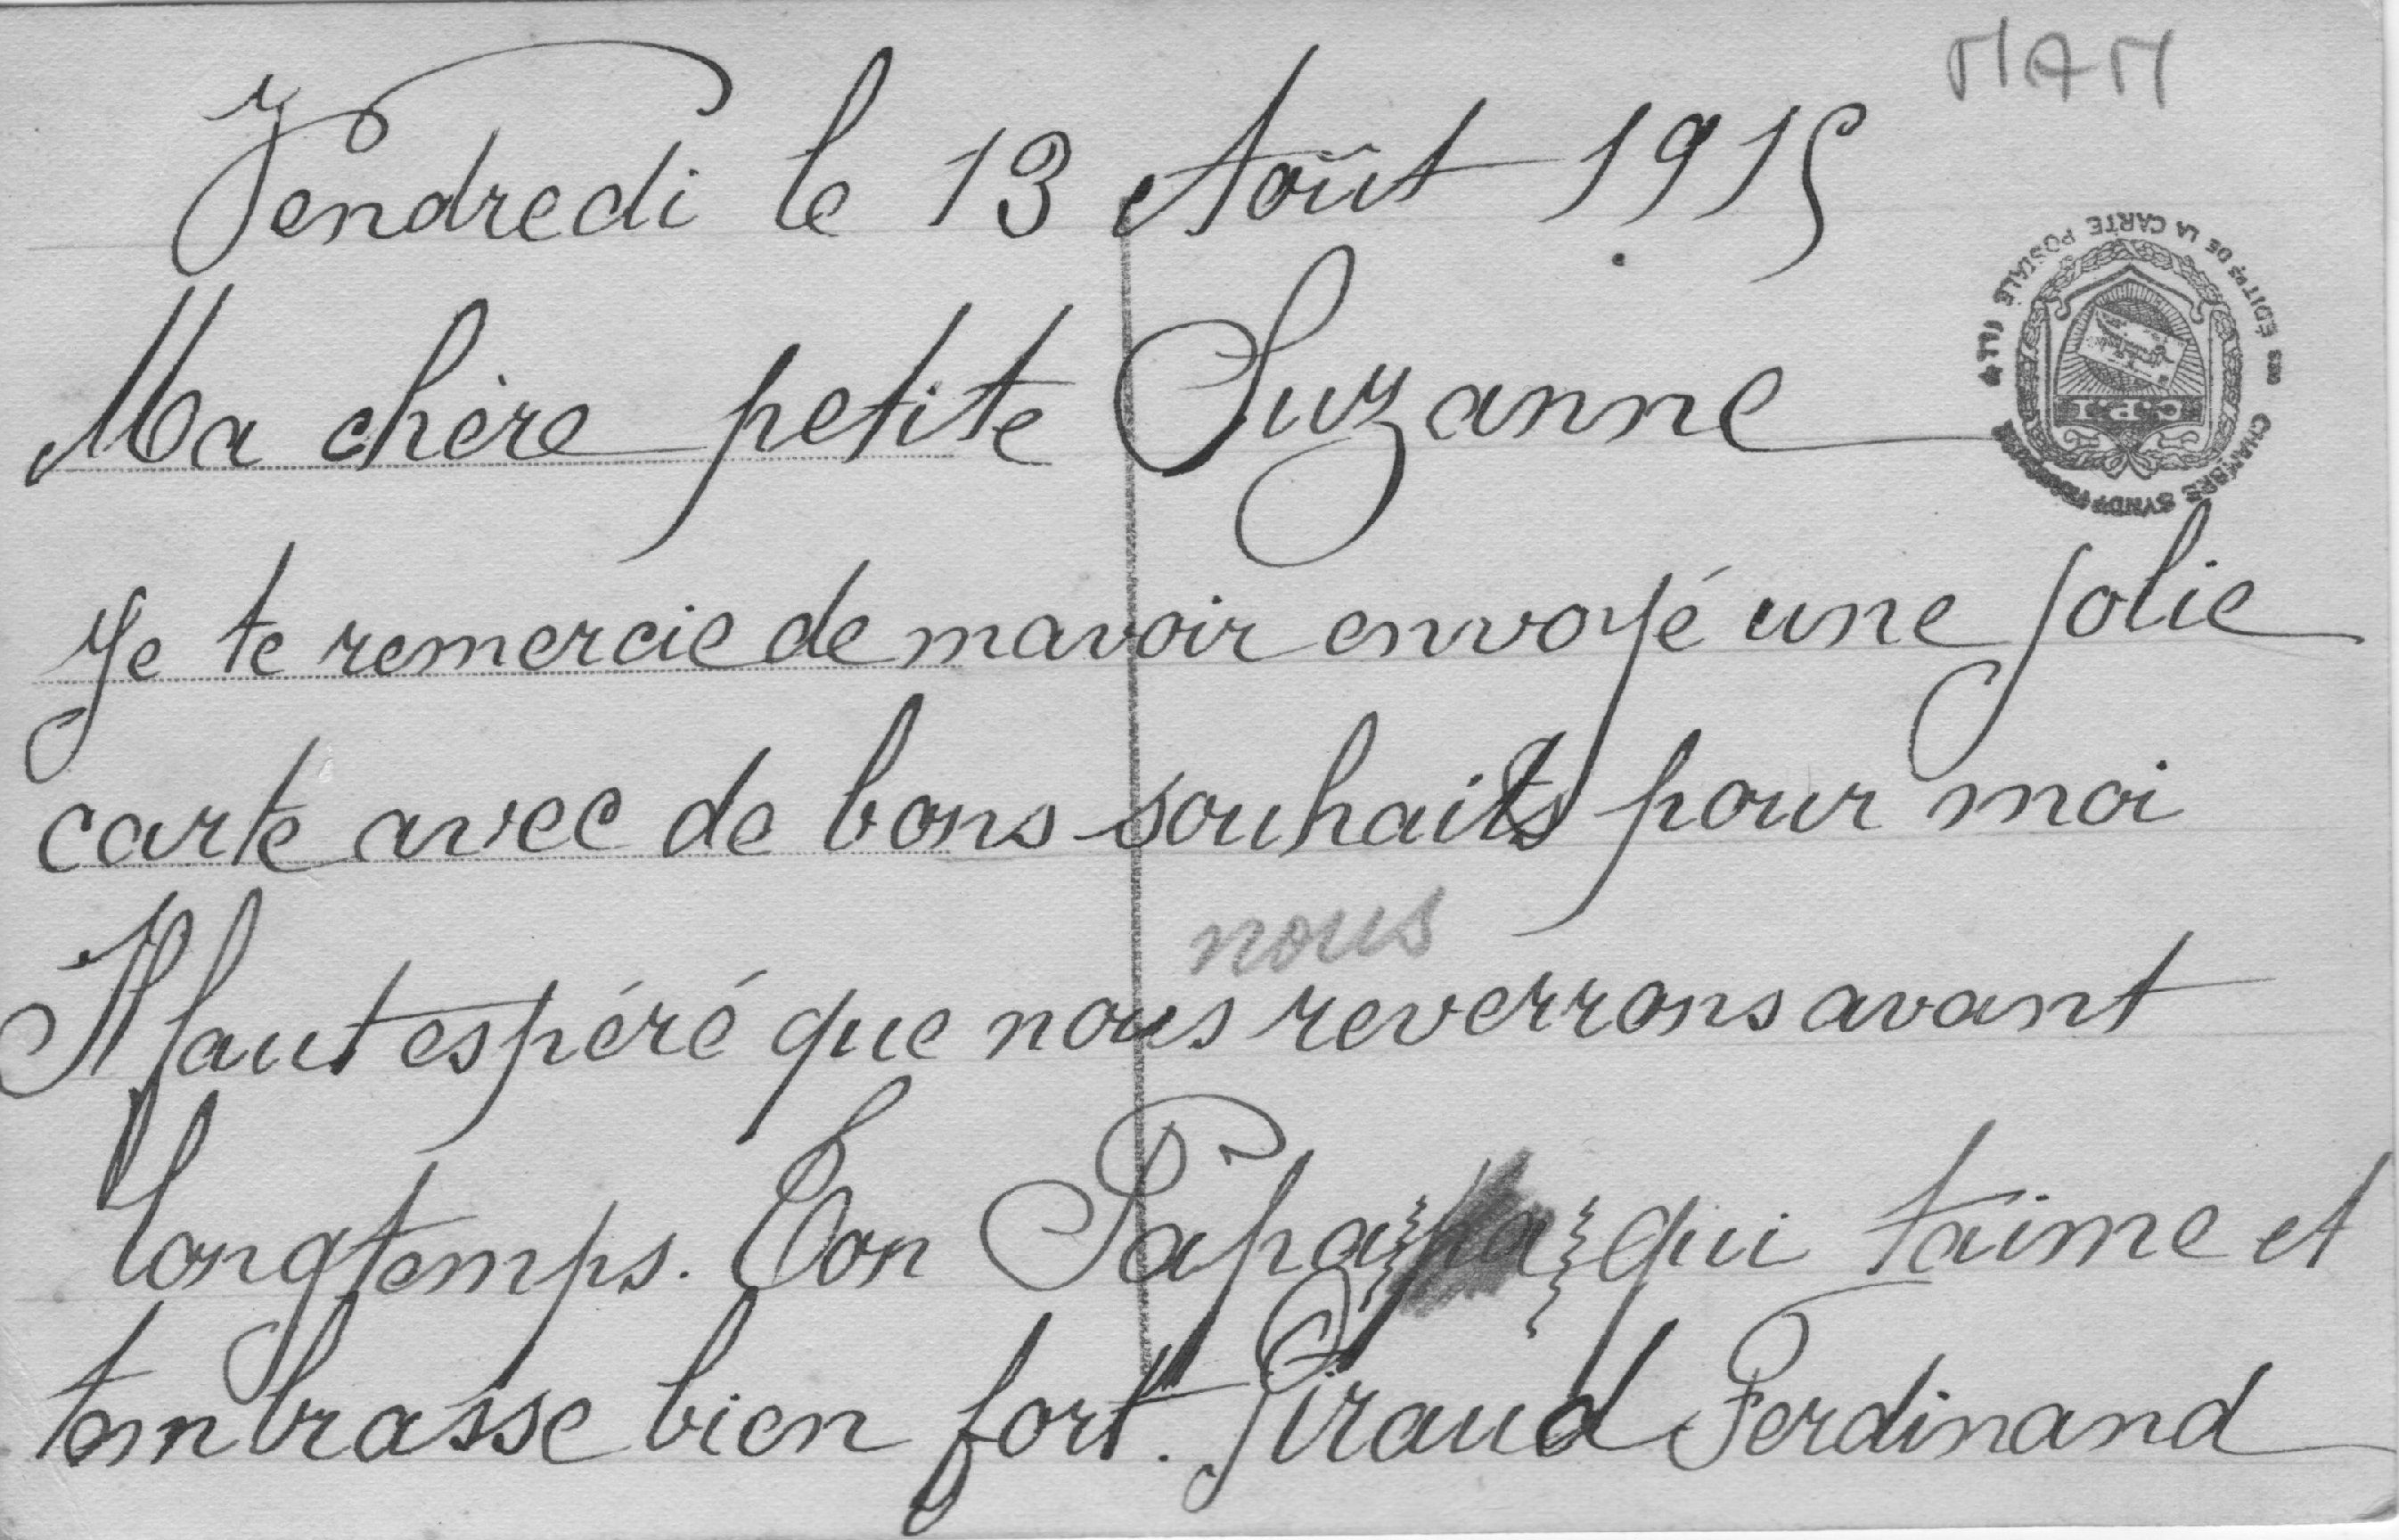 MAM
Vendredi le 13 Août 1915
Ma chère petite Suzanne
Je te remercie de mavoir envoyé une jolie
carte avec de bons souhaits pour moi
nous
Il faut espéré que nous reverrons avant
longtemps. Ton Papa qui taime et
tembrasse bien fort. Piraud Ferdinand
CHAMBRE SYNDICALE FRANÇAISE DES ÉDITRS DE LA CARTE POSTALE ILLÉE
C.P.I